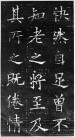 快然自足曾不
知老之將至及
其所之既倦情